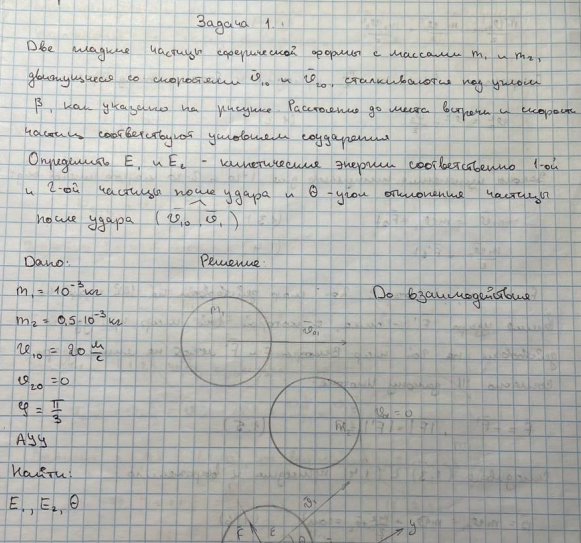 Задача 1.
Две гладкие частицы сферической формы с массами m₁ и m₂,
движущиеся со скоростями v̄₁₀ и v̄₂₀, сталкиваются под углом
β, как указано на рисунке. Расстояние до места встречи и скорости
частиц соответствуют условиям соударения
Определить E₁ и E₂ - кинетические энергии соответственно 1-ой
и 2-ой частицы после удара и θ - угол отклонения частицы
после удара (v̄₁₀, v̄₁)
Дано: Решение:
m₁ = 10⁻³ кг До взаимодействия
m₂ = 0,5·10⁻³ кг
v₁₀ = 20 м/с
v₂₀ = 0
φ = π/3
АУУ
Найти:
E₁, E₂, θ
m₁
m₂
= 0
v̄₁
F̄ E
y